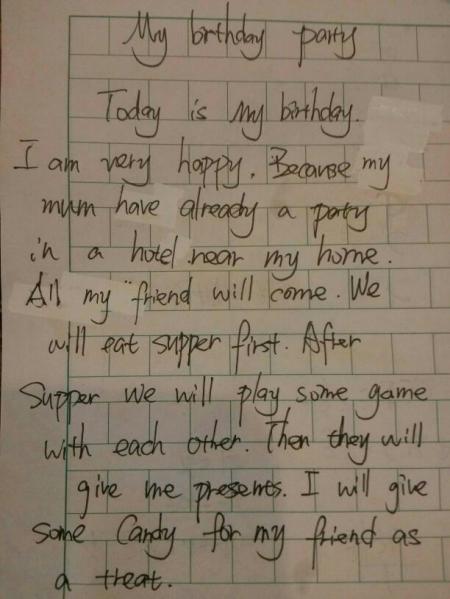 My birthday party
Today is My birthday.
I am very happy. Because my
mum have already a party
in a hotel near my home.
All my friend will come. We
will eat supper first. After
Supper we will play some game
with each other. Then they will
give me presents. I will give
some Candy for my friend as
a treat.